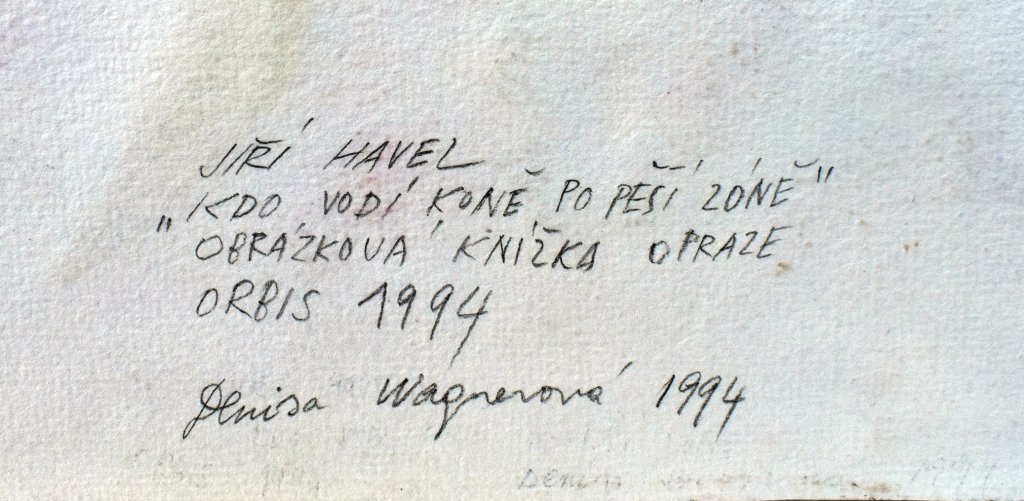 JIŘÍ HAVEL
„KDO VODÍ KONĚ PO PĚŠÍ ZÓNĚ"
OBRÁZKOVÁ KNÍŽKA O PRAZE
ORBIS 1994
Denisa Wagnerová 1994